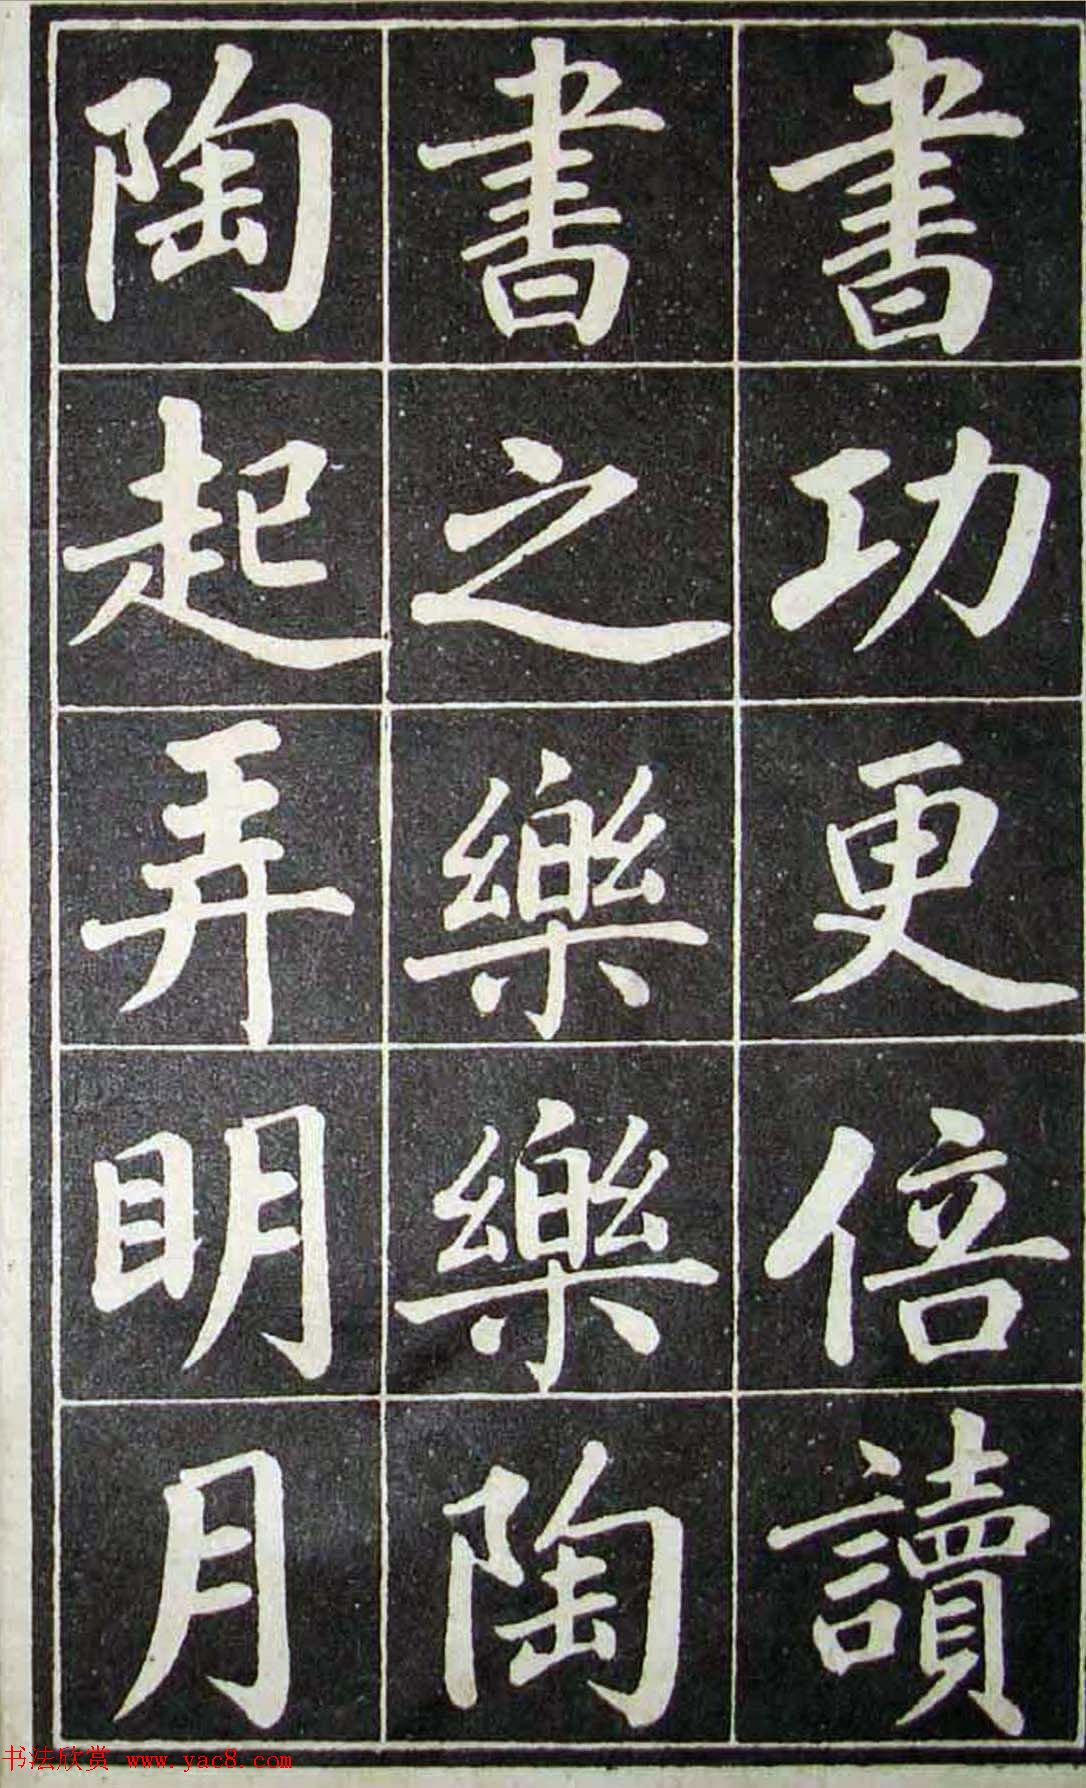 書功更倍讀
書之樂樂陶
陶起弄明月
书法欣赏 www.yac8.com